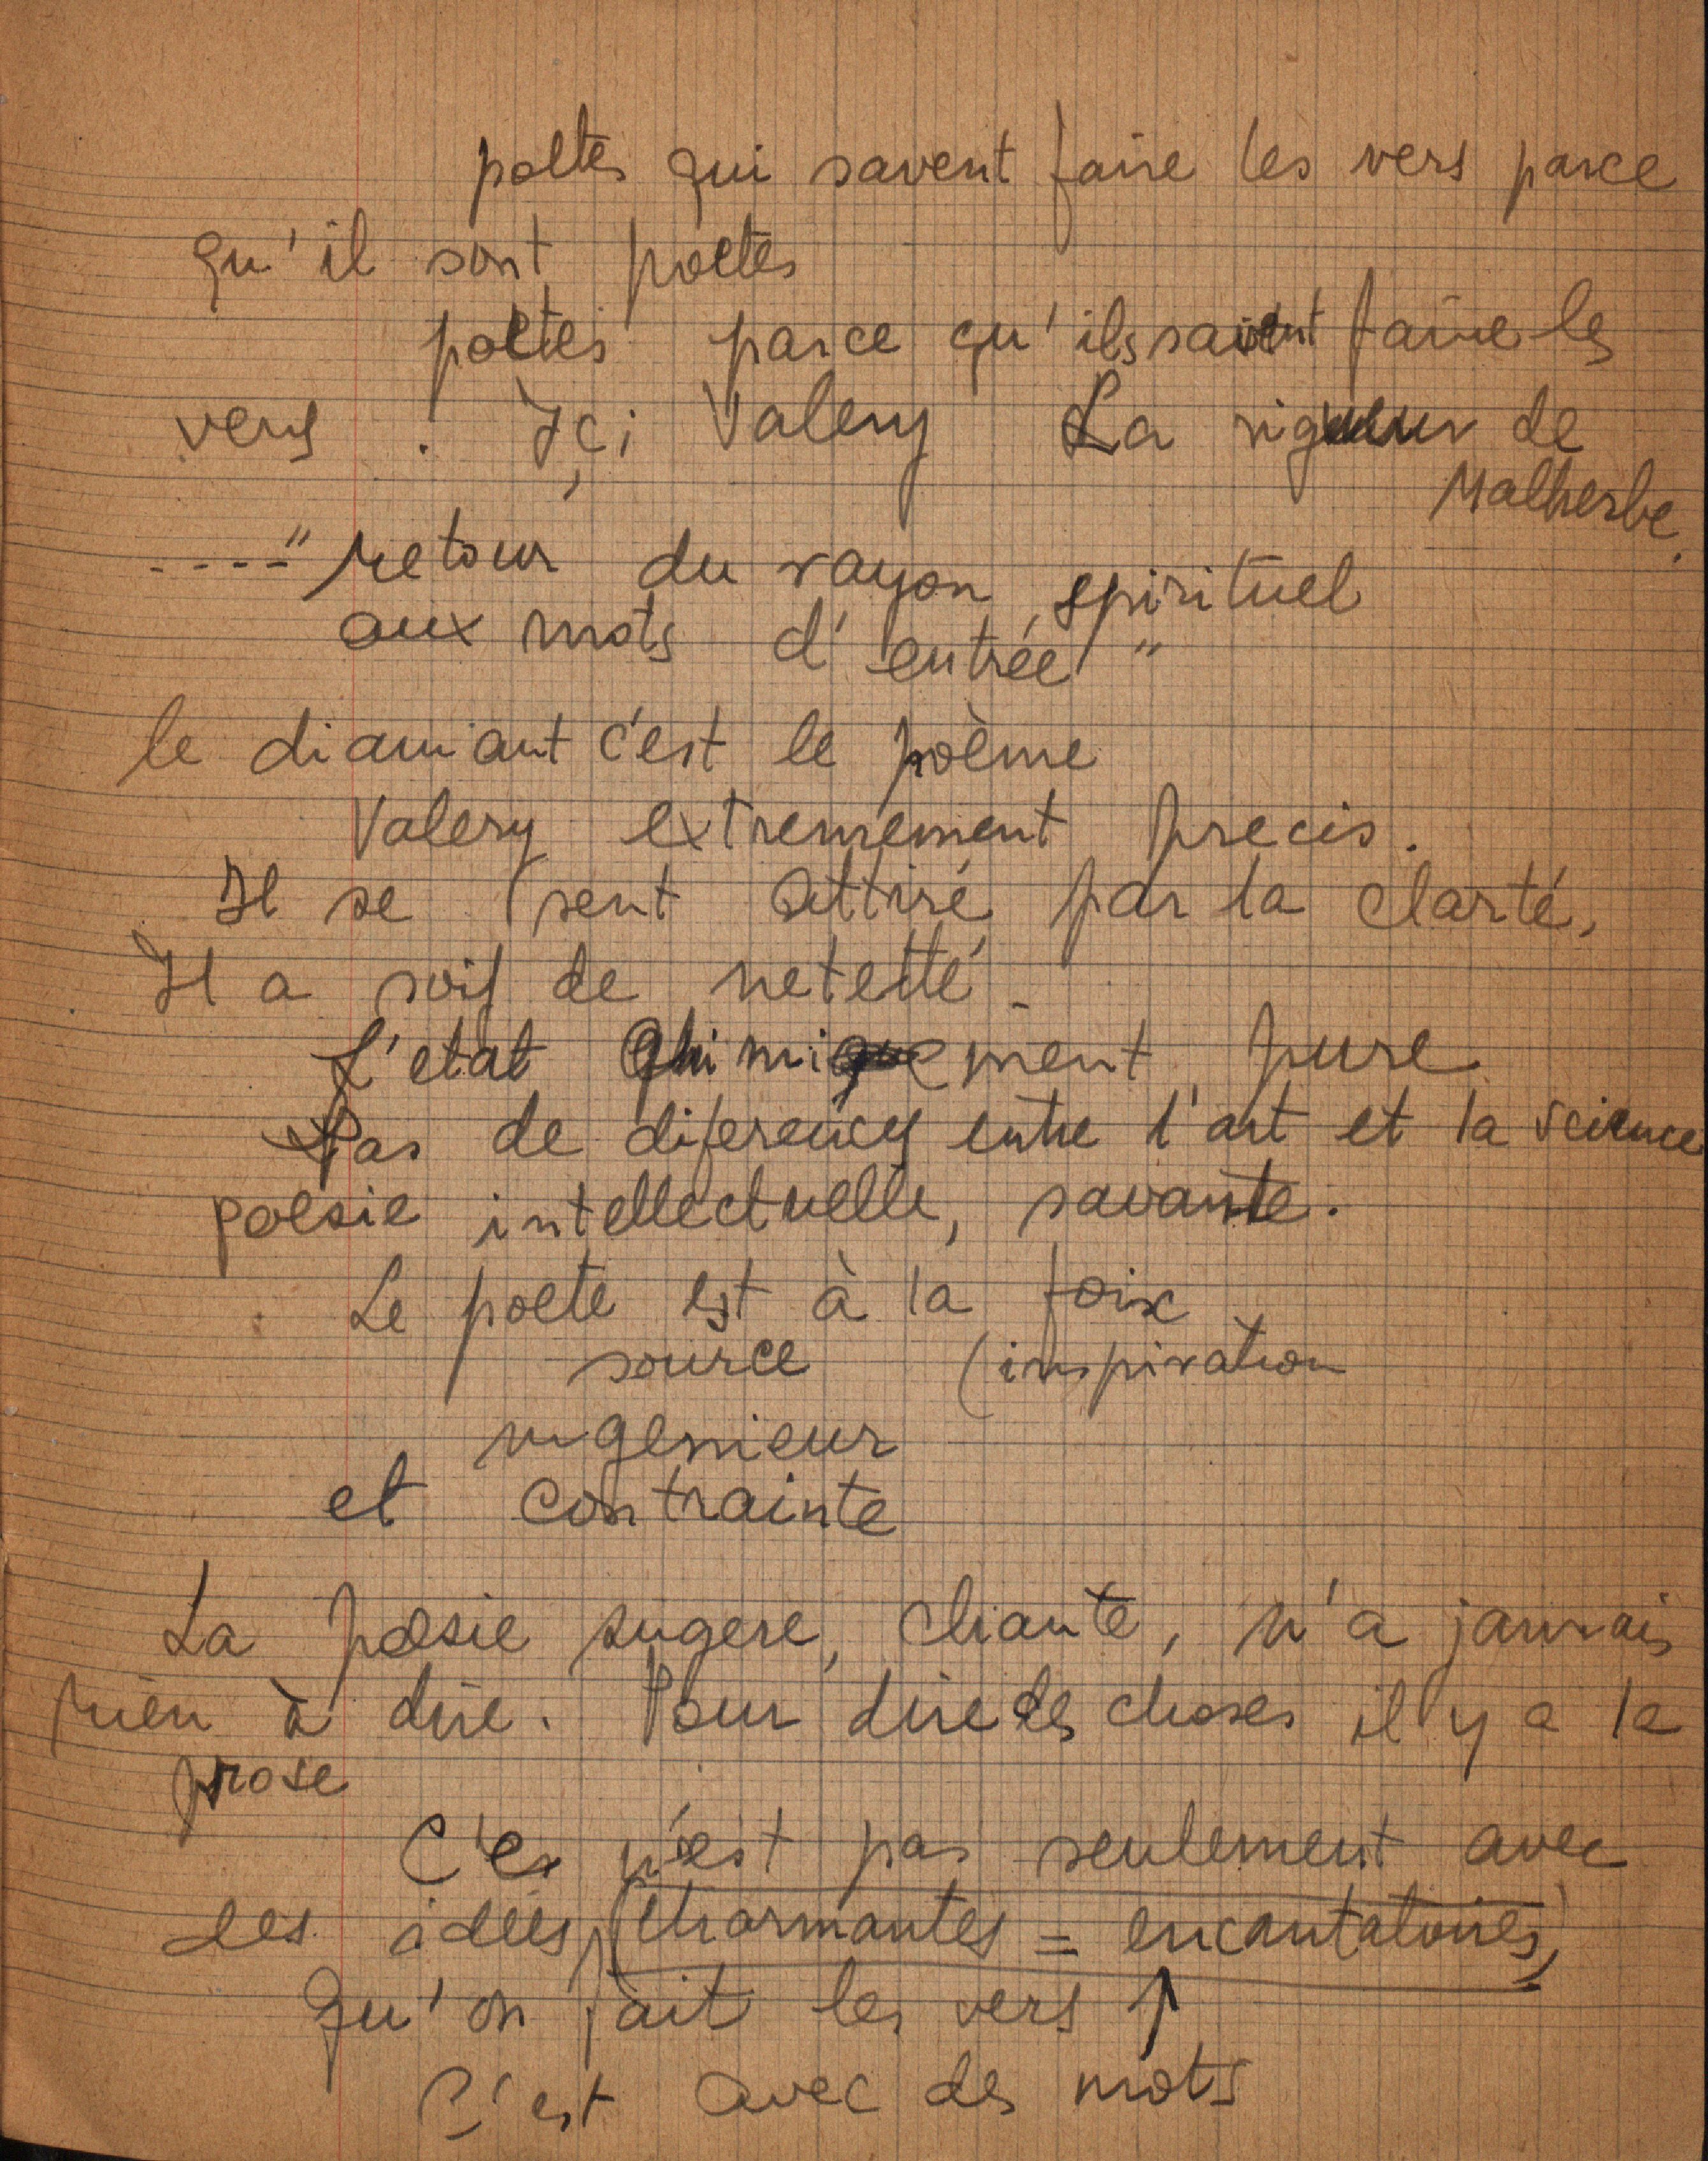 poetes qui savent faire les vers parce
qu'il sont poetes
poetes parce qu'ils savent faire les
vers . Içi Valery La rigueur de
Malherbe.
----" retour du rayon spirituel
aux mots d'entrée "
le diamant c'est le poème
Valery extremement precis.
Il se sent attiré par la clarté,
Il a soif de neteté
L'etat quimiquement pure
Pas de diferences entre l'art et la science
poesie intellectuelle, savante.
Le poete est à la foix
source (inspiration
ingenieur
et contrainte
La poesie sugere, chante, n'a jamais
rien à dire. Pour dire des choses il y a la
prose
C'es n'est pas seulement avec
des idées, (charmantes = encantatoires)
qu'on fait les vers ↑
C'est avec des mots